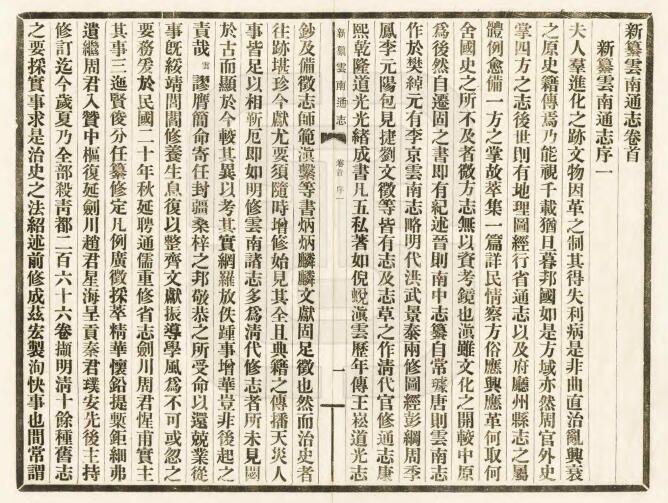 新纂雲南通志卷首
新纂雲南通志序一
夫人羣進化之跡文物因革之制其得失利病是非曲直治亂興衰
之原史籍傳焉乃能視千載猶旦暮邦國如是方域亦然周官外史
掌四方之志後世則有地理圖經行省通志以及府廳州縣志之屬
體例愈備一方之掌故萃集一篇詳民情察方俗應興應革何取何
舍國史之所不及者微方志無以資考鏡也滇雖文化之開較中原
爲後然自遷固之書即有紀述晉則南中志纂自常璩唐則雲南志
作於樊綽元有李京雲南志略明代洪武景泰兩修圖經彭綱周季
鳳李元陽包見捷劉文徵等皆有志及志草之作清代官修通志康
熙乾隆道光光緒成書凡五私著如倪蛻滇雲歷年傳王崧道光志
新纂雲南通志
卷首
序一
一
鈔及備徵志師範滇繫等書炳炳麟麟文獻固足徵也然而治史者
往跡堪珍今獻尤要須隨時增修始見其全且典籍之傳播天災人
事皆足以相斬厄即如明修雲南諸志多爲清代修志者所未見闕
於古而顯於今較其異以考其實網羅放佚踵事增華豈非後起之
責哉雲謬膺簡命寄任封疆桑梓之邦敬恭之所受命以還兢業從
事旣綏靖閭閻修養生息復以整齊文獻振導學風爲不可或忽之
要務爰於民國二十年秋延聘通儒重修省志劍川周君惺甫實主
其事三迤賢俊分任纂修定凡例廣徵採萃精華懷鉛提槧鉅細弗
遺繼周君入贊中樞復延劍川趙君星海呈貢秦君璞安先後主持
修訂迄今歲夏乃全部殺靑都二百六十六卷擷明清十餘種舊志
之要採實事求是治史之法紹述前修成茲宏製洵快事也間常謂